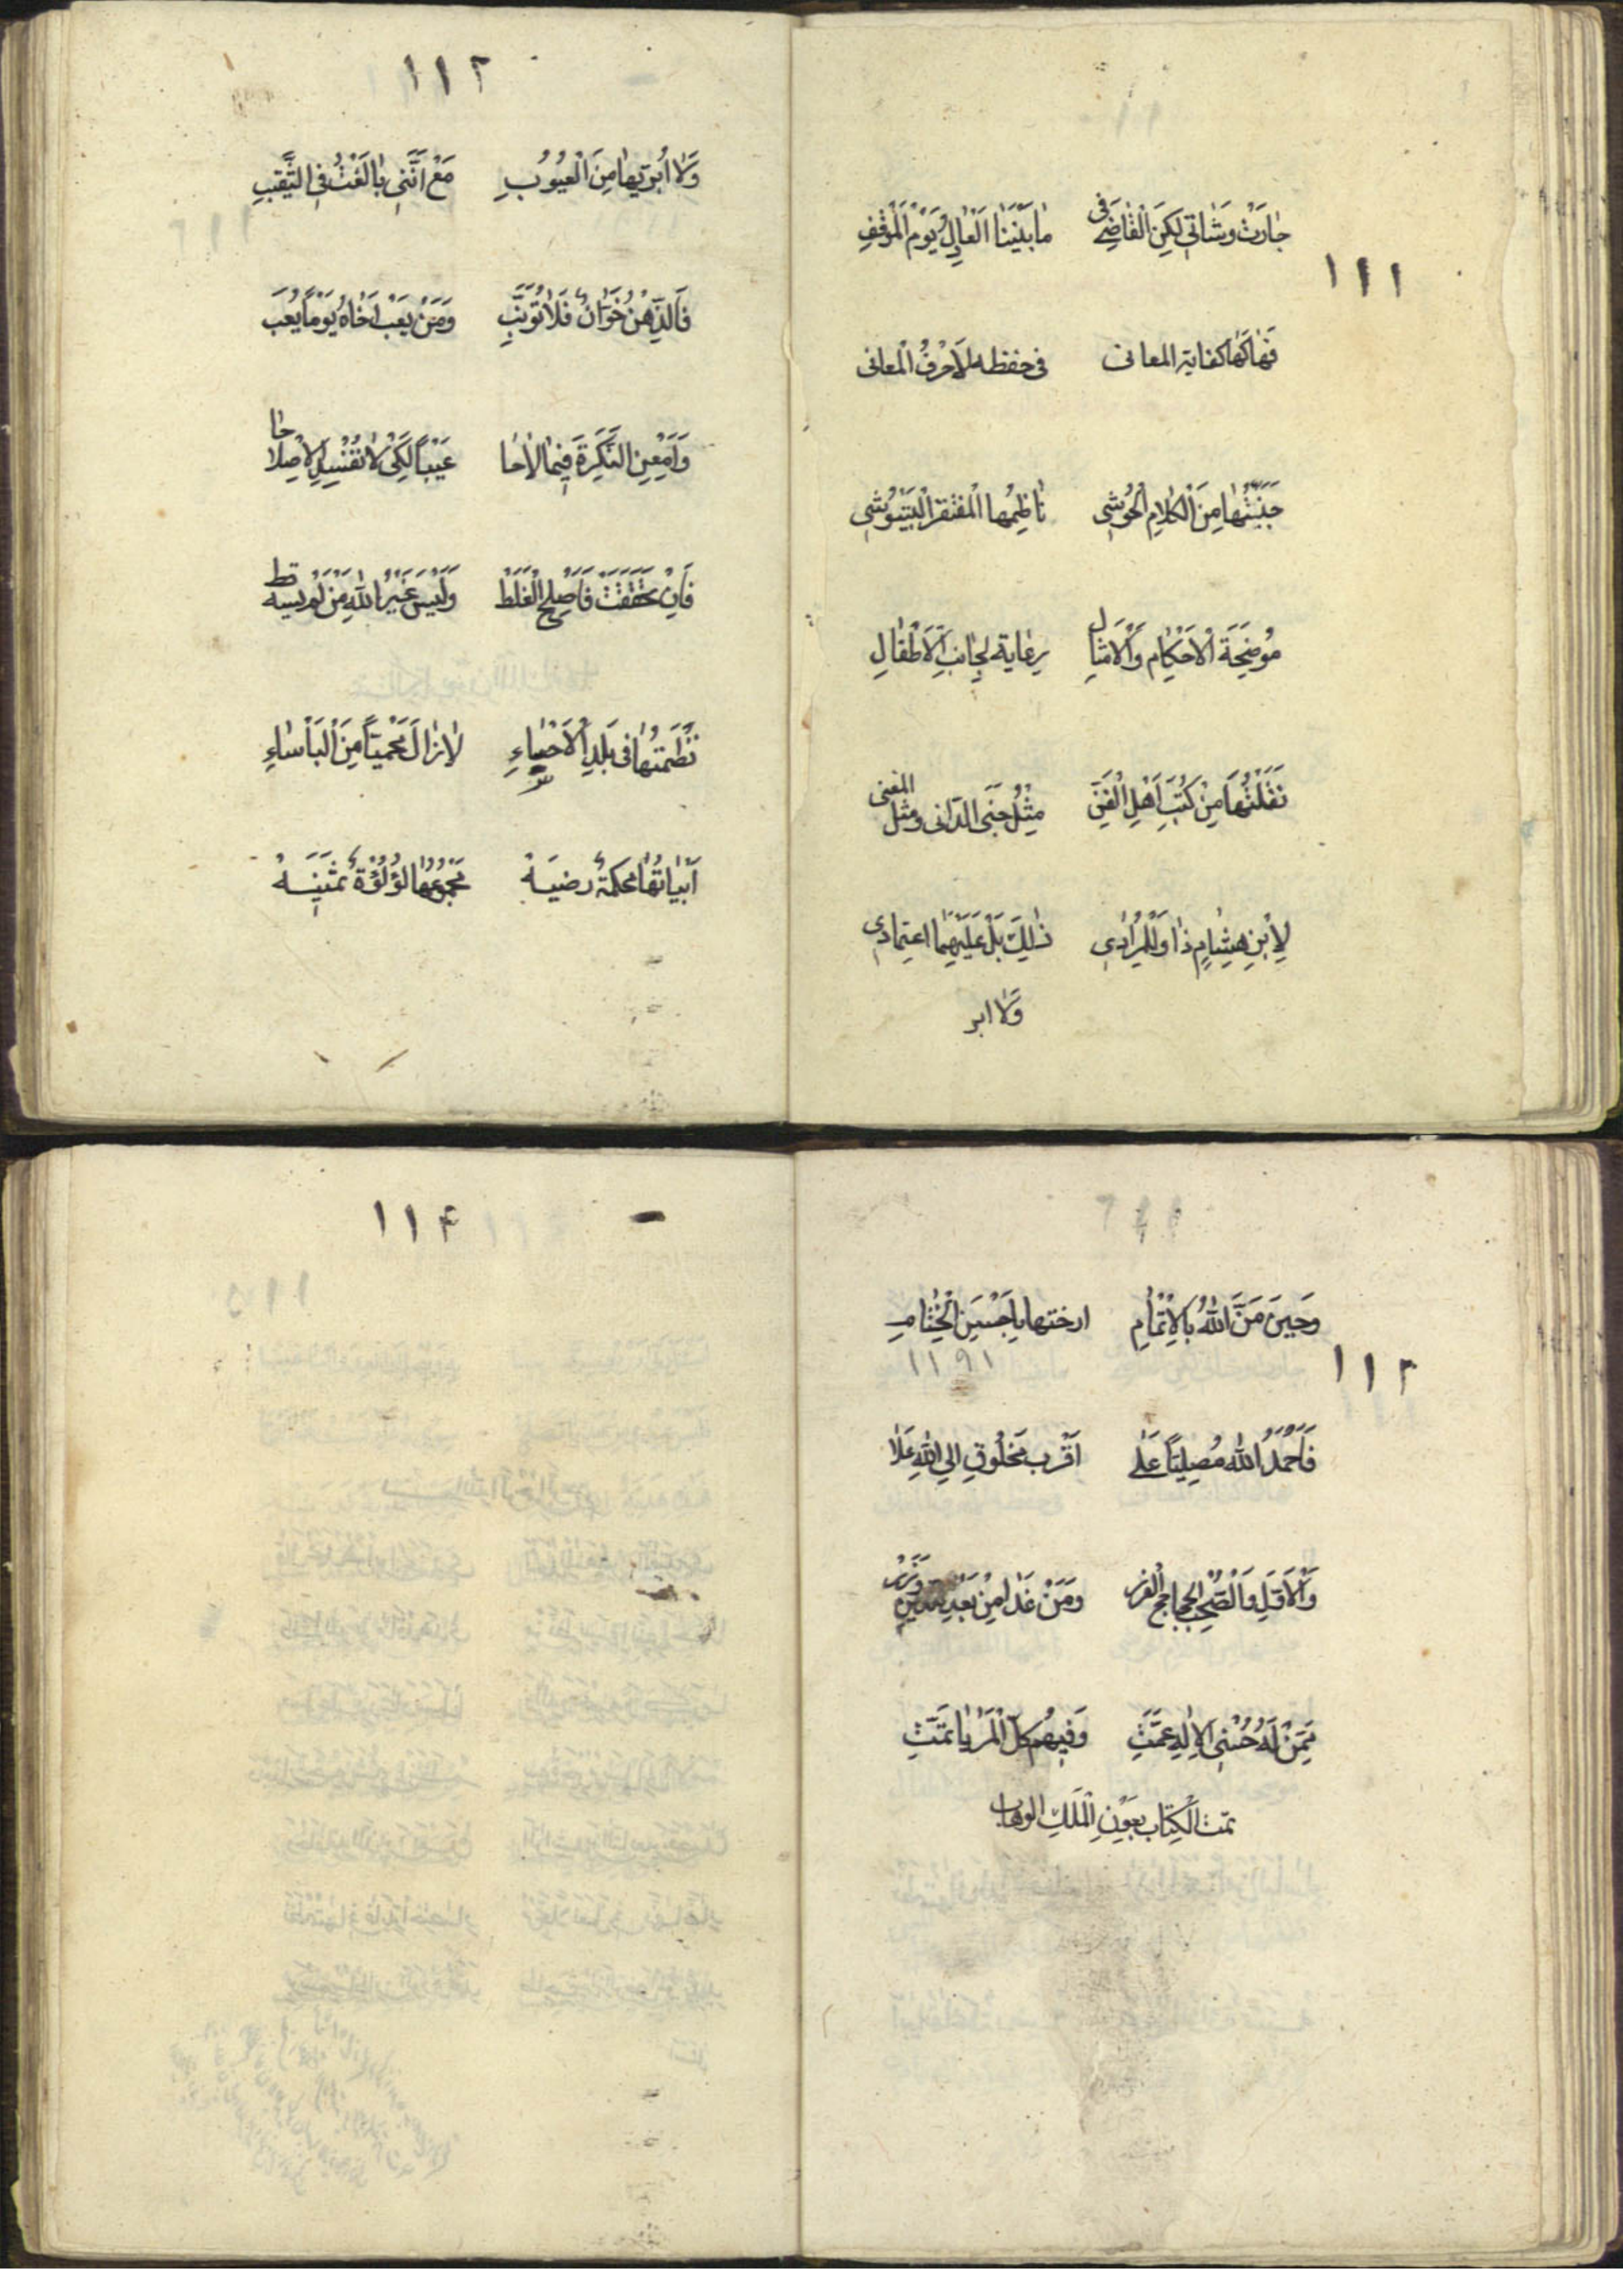 ١١١
جٰارَتْ وشَٰاتي لكِنَ الْقٰاضَے فی مٰا بَيْنَنٰا الْعٰادِلُ يَوْمَ الْمَوْقِفِ
فَهٰاكَهٰا كفاية المعانی فی حفظه لاَحْرُفُ الْمعانی
جَنَّبْتُهٰا مِنَ الْكَلامِ الْحُوشی نٰاظِمُها الْمفتقر الْبَيْتُوشی
مُوضِحَةَ الْاَحْكٰامِ وَالْاَمْثٰالِ رِعٰايَة لِجٰانِبِ الْاَطْفٰالِ
نَقَلْتُهٰا مِنْ كُتُبِ اَهْلِ الْفَنِّ مِثْلُ جَنَی الدّانی ومثل المغنی
لِاِبْنِ هِشٰامٍ ذٰا وَلِلْمُرٰادِی ذٰلِكَ بَلْ عَلَيْهِمٰا اعتِمٰادی
وَلٰا ابر
١١٢
وَلٰا اُبَرّيهٰا مِنَ الْعُيُوبِ مَعْ اَنَّنی بٰالَغْتُ فی التَّهْذيبِ
فَالذِّهْنُ خَوّٰانٌ فَلٰا تُؤَنِّبِ وَمَنْ يَعِبْ اَخٰاهُ يَوْماً يُعَبِ
وَاَمْعِنِ الْفِكْرَةَ فيمٰا لٰاحٰا عَيْباً لِكَی لٰا تُفْسِدِ الْاِصْلاحٰا
فَاِنْ تَحَقَّقْتَ فَاَصْلِحِ الْغَلَطْ وَلَيْسَ غَيْرُ اللهِ مَنْ لَمْ يسهُ قط
نَظَمْتُهٰا فی بَلَدِ الْاَحْسٰاءِ لٰازٰالَ مَحْمِيّاً مِنَ الْبَأْسٰاءِ
اَبْيٰاتُهٰا مُحكمةٌ رضيَهْ مَجْمُوعُهٰا لُؤْلُؤَةٌ ثَمَينَهْ
١١٣
وَحينَ مَنَّ اللهُ بالْاِتْمٰامِ ارختها باَحْسَنِ الْخِتٰامِ
١١٩١
فَاَحْمَدُ اللهَ مُصِلِيّاً عَلٰی اَقْرَب مَخْلُوقٍ الی اللهِ عَلَا
وَالْاٰلِ وَالصَّحْبِ الجحاجح الغرر وَمَنْ غَدٰا مِنْ بَعْدِ
مِمَّنْ لَهُ حُسْنَی الْاِلٰهِ عَمَّتِ وَفيهُم كلّ الْمَزٰايٰا تمَّتِ
تمت الْكِتٰاب بِعَوْنِ الْمَلَكِ الوهاب
١١۴